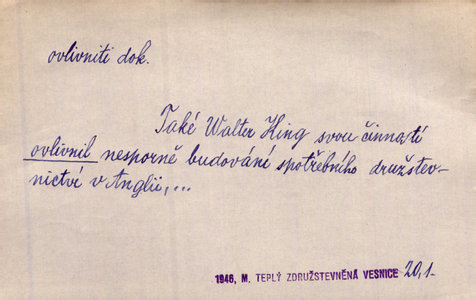 ovlivniti dok.
Také Walter King svou činností
ovlivnil nesporně budování spotřebního družstev-
nictví v Anglii,...
1946, M. TEPLÝ ZDRUŽSTEVNĚNÁ VESNICE 20,1-